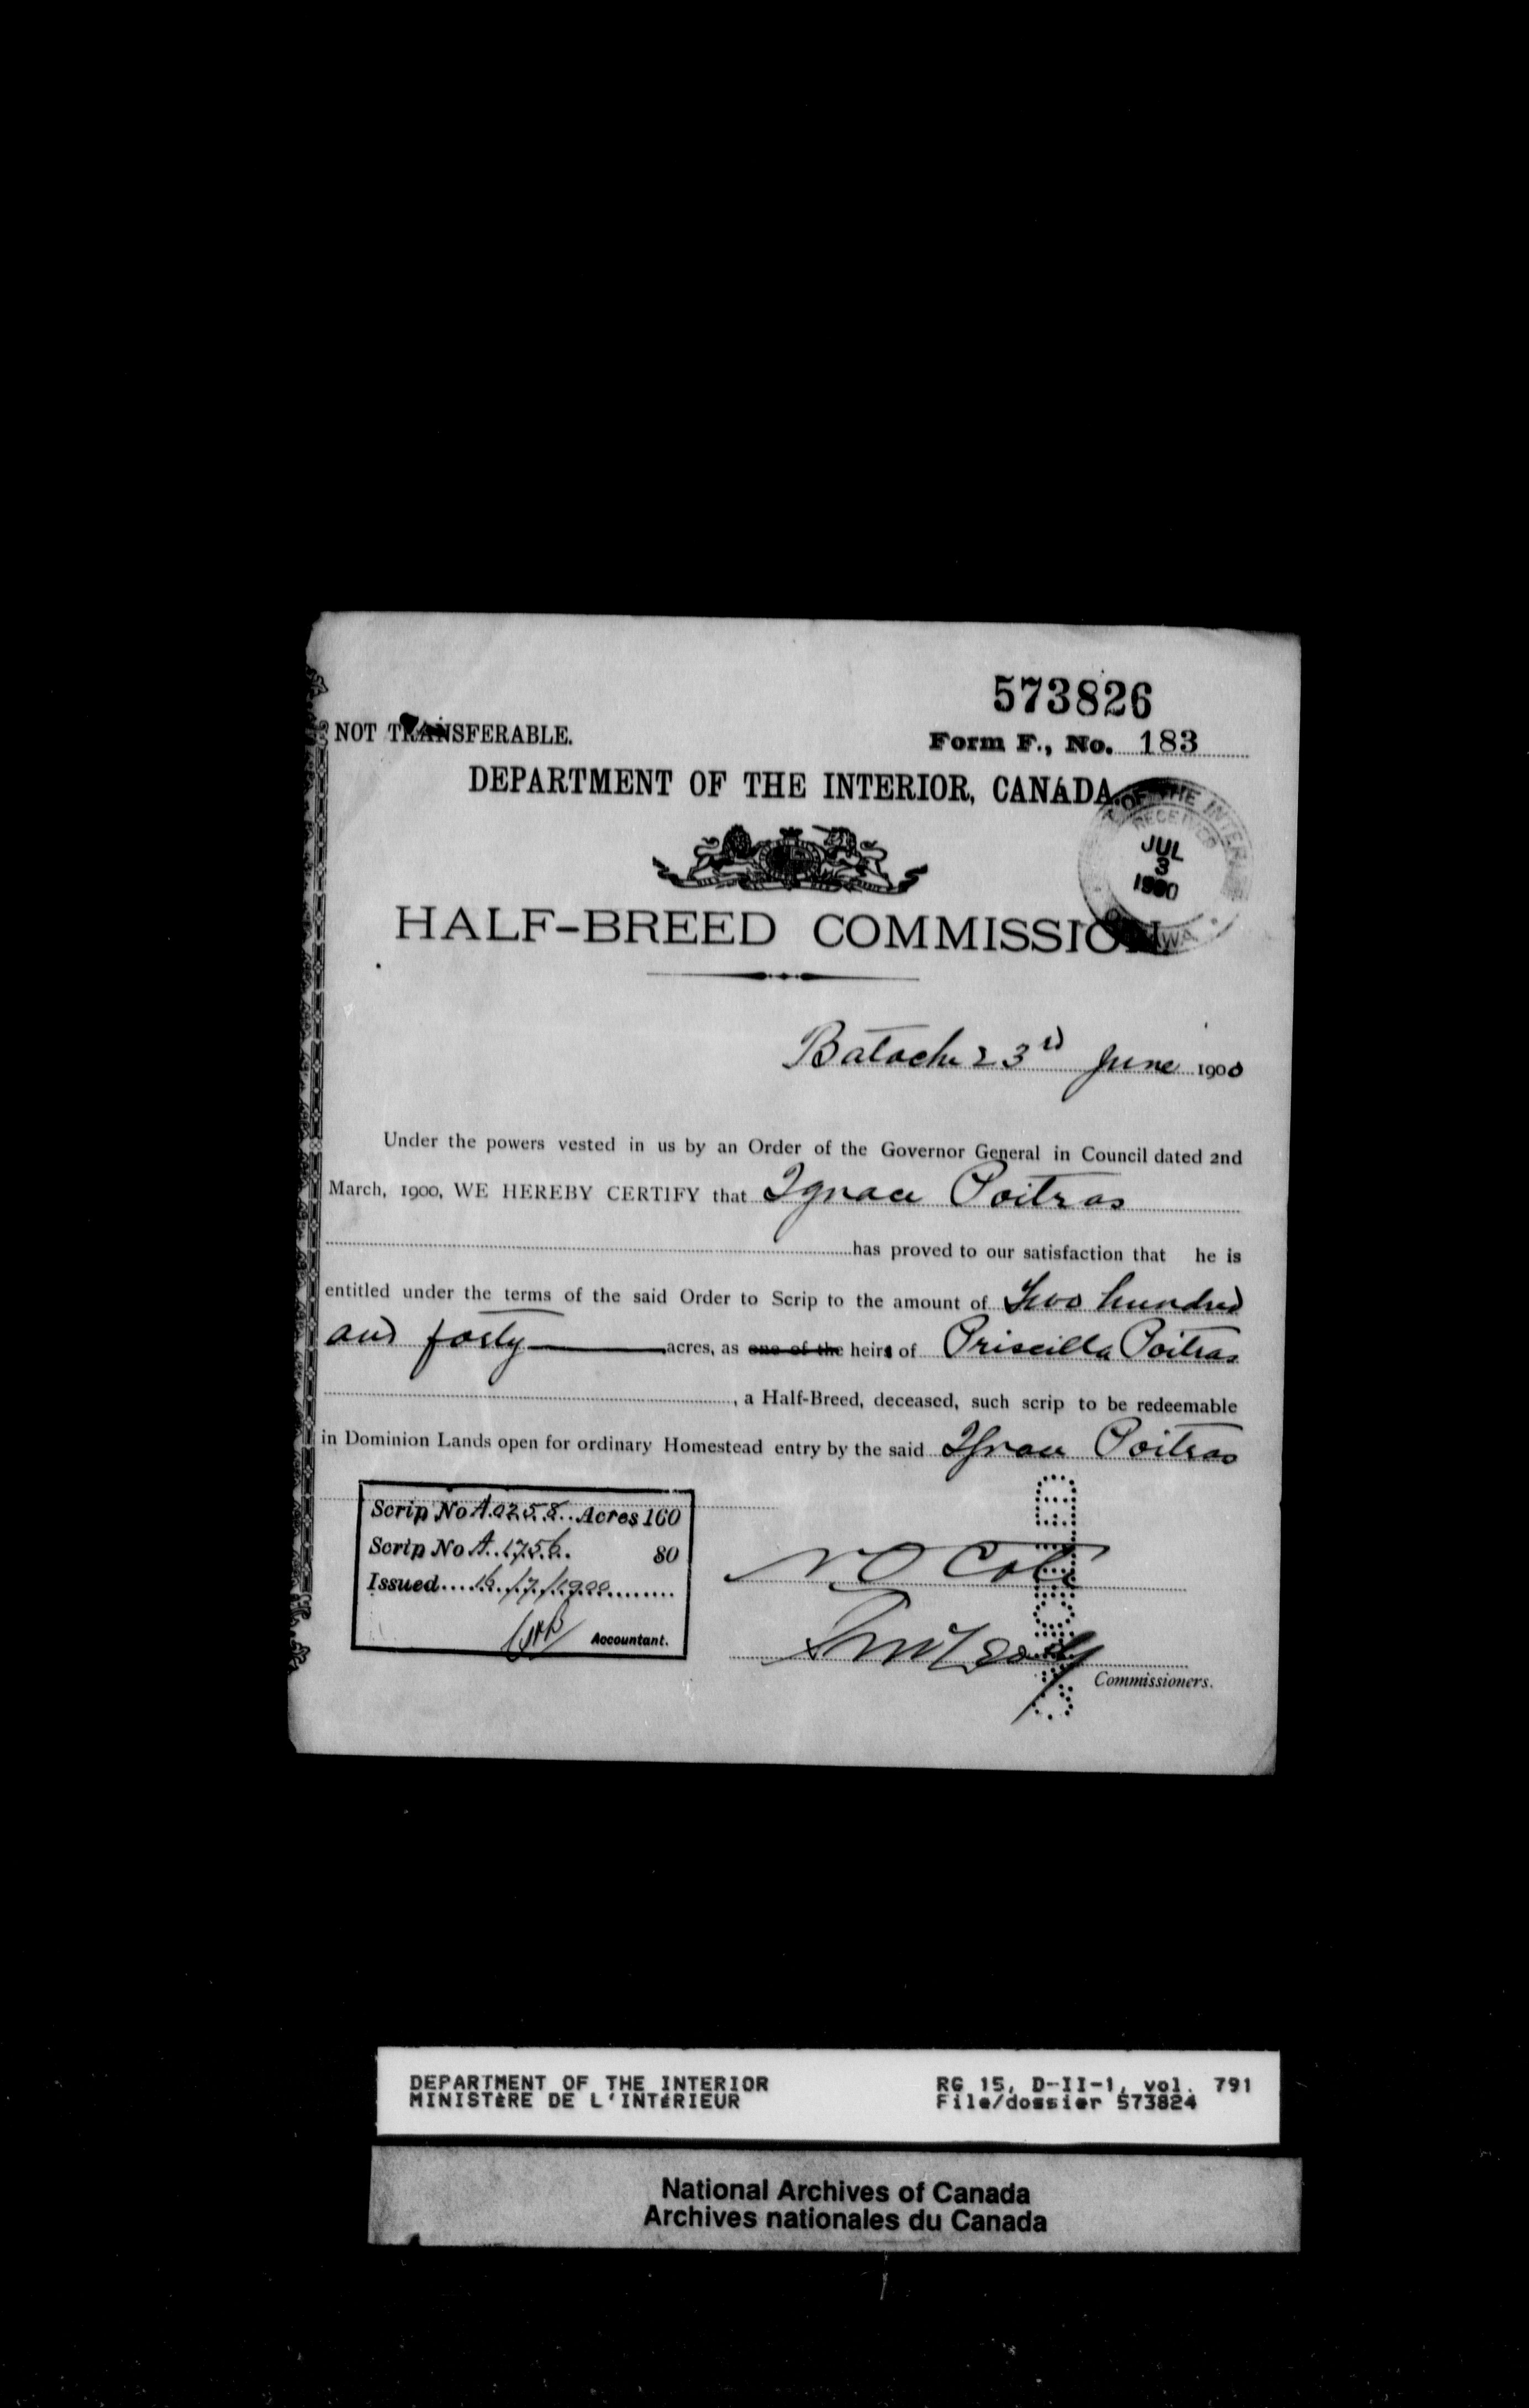 573826
NOT TRANSFERABLE.
Form F., No. 183
DEPARTMENT OF THE INTERIOR, CANADA.
OF THE INTERIOR
RECEIVED
JUL
3
1900
HALF-BREED COMMISSION.
Batoche 23rd June 1900
Under the powers vested in us by an Order of the Governor General in Council dated 2nd
March, 1900, WE HEREBY CERTIFY that Ignace Poitras
has proved to our satisfaction that he is
entitled under the terms of the said Order to Scrip to the amount of Two hundred
and forty acres, as one of the heirs of Priscilla Poitras
, a Half-Breed, deceased, such scrip to be redeemable
in Dominion Lands open for ordinary Homestead entry by the said Ignace Poitras
Scrip No A.0258 Acres 160
Scrip No A.1756. 80
Issued 16/7/1900
Accountant.
N O Coté
Commissioners.
DEPARTMENT OF THE INTERIOR RG 15, D-II-1, vol. 791
MINISTÈRE DE L'INTÉRIEUR File/dossier 573824
National Archives of Canada
Archives nationales du Canada